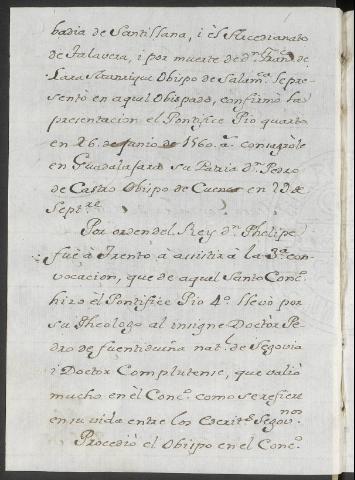 badia de Santillana, i èl Arcedianato
de Talavera, i por muerte de dn. Franco. de
Lara Manrique Obispo de Salamca. le pre-
sentò en aquel Obispado, confirmò la
presentacion el Pontifice Pio quarto
en 26. de junio de 1560. as. consagròle
en Guadalajara su Patria Dn. Pedro
de Castro Obispo de Cuenca en 29 de
Septre.
Por orden del Rey dn. Phelipe
fuè à Trento à assistir à la 3a. con-
vocacion, que de aquel Santo Conco.
hizo èl Pontifice Pio 4o. llevò por
su Theologo al insigne Doctor Pe-
dro de fuentidueña natl. de Segovia
i Doctor Complutense, que valiò
mucho en èl Conco. como se refiere
en su vida entre los Escrits. Segovnos.
Procediò el Obispo en el Conco.